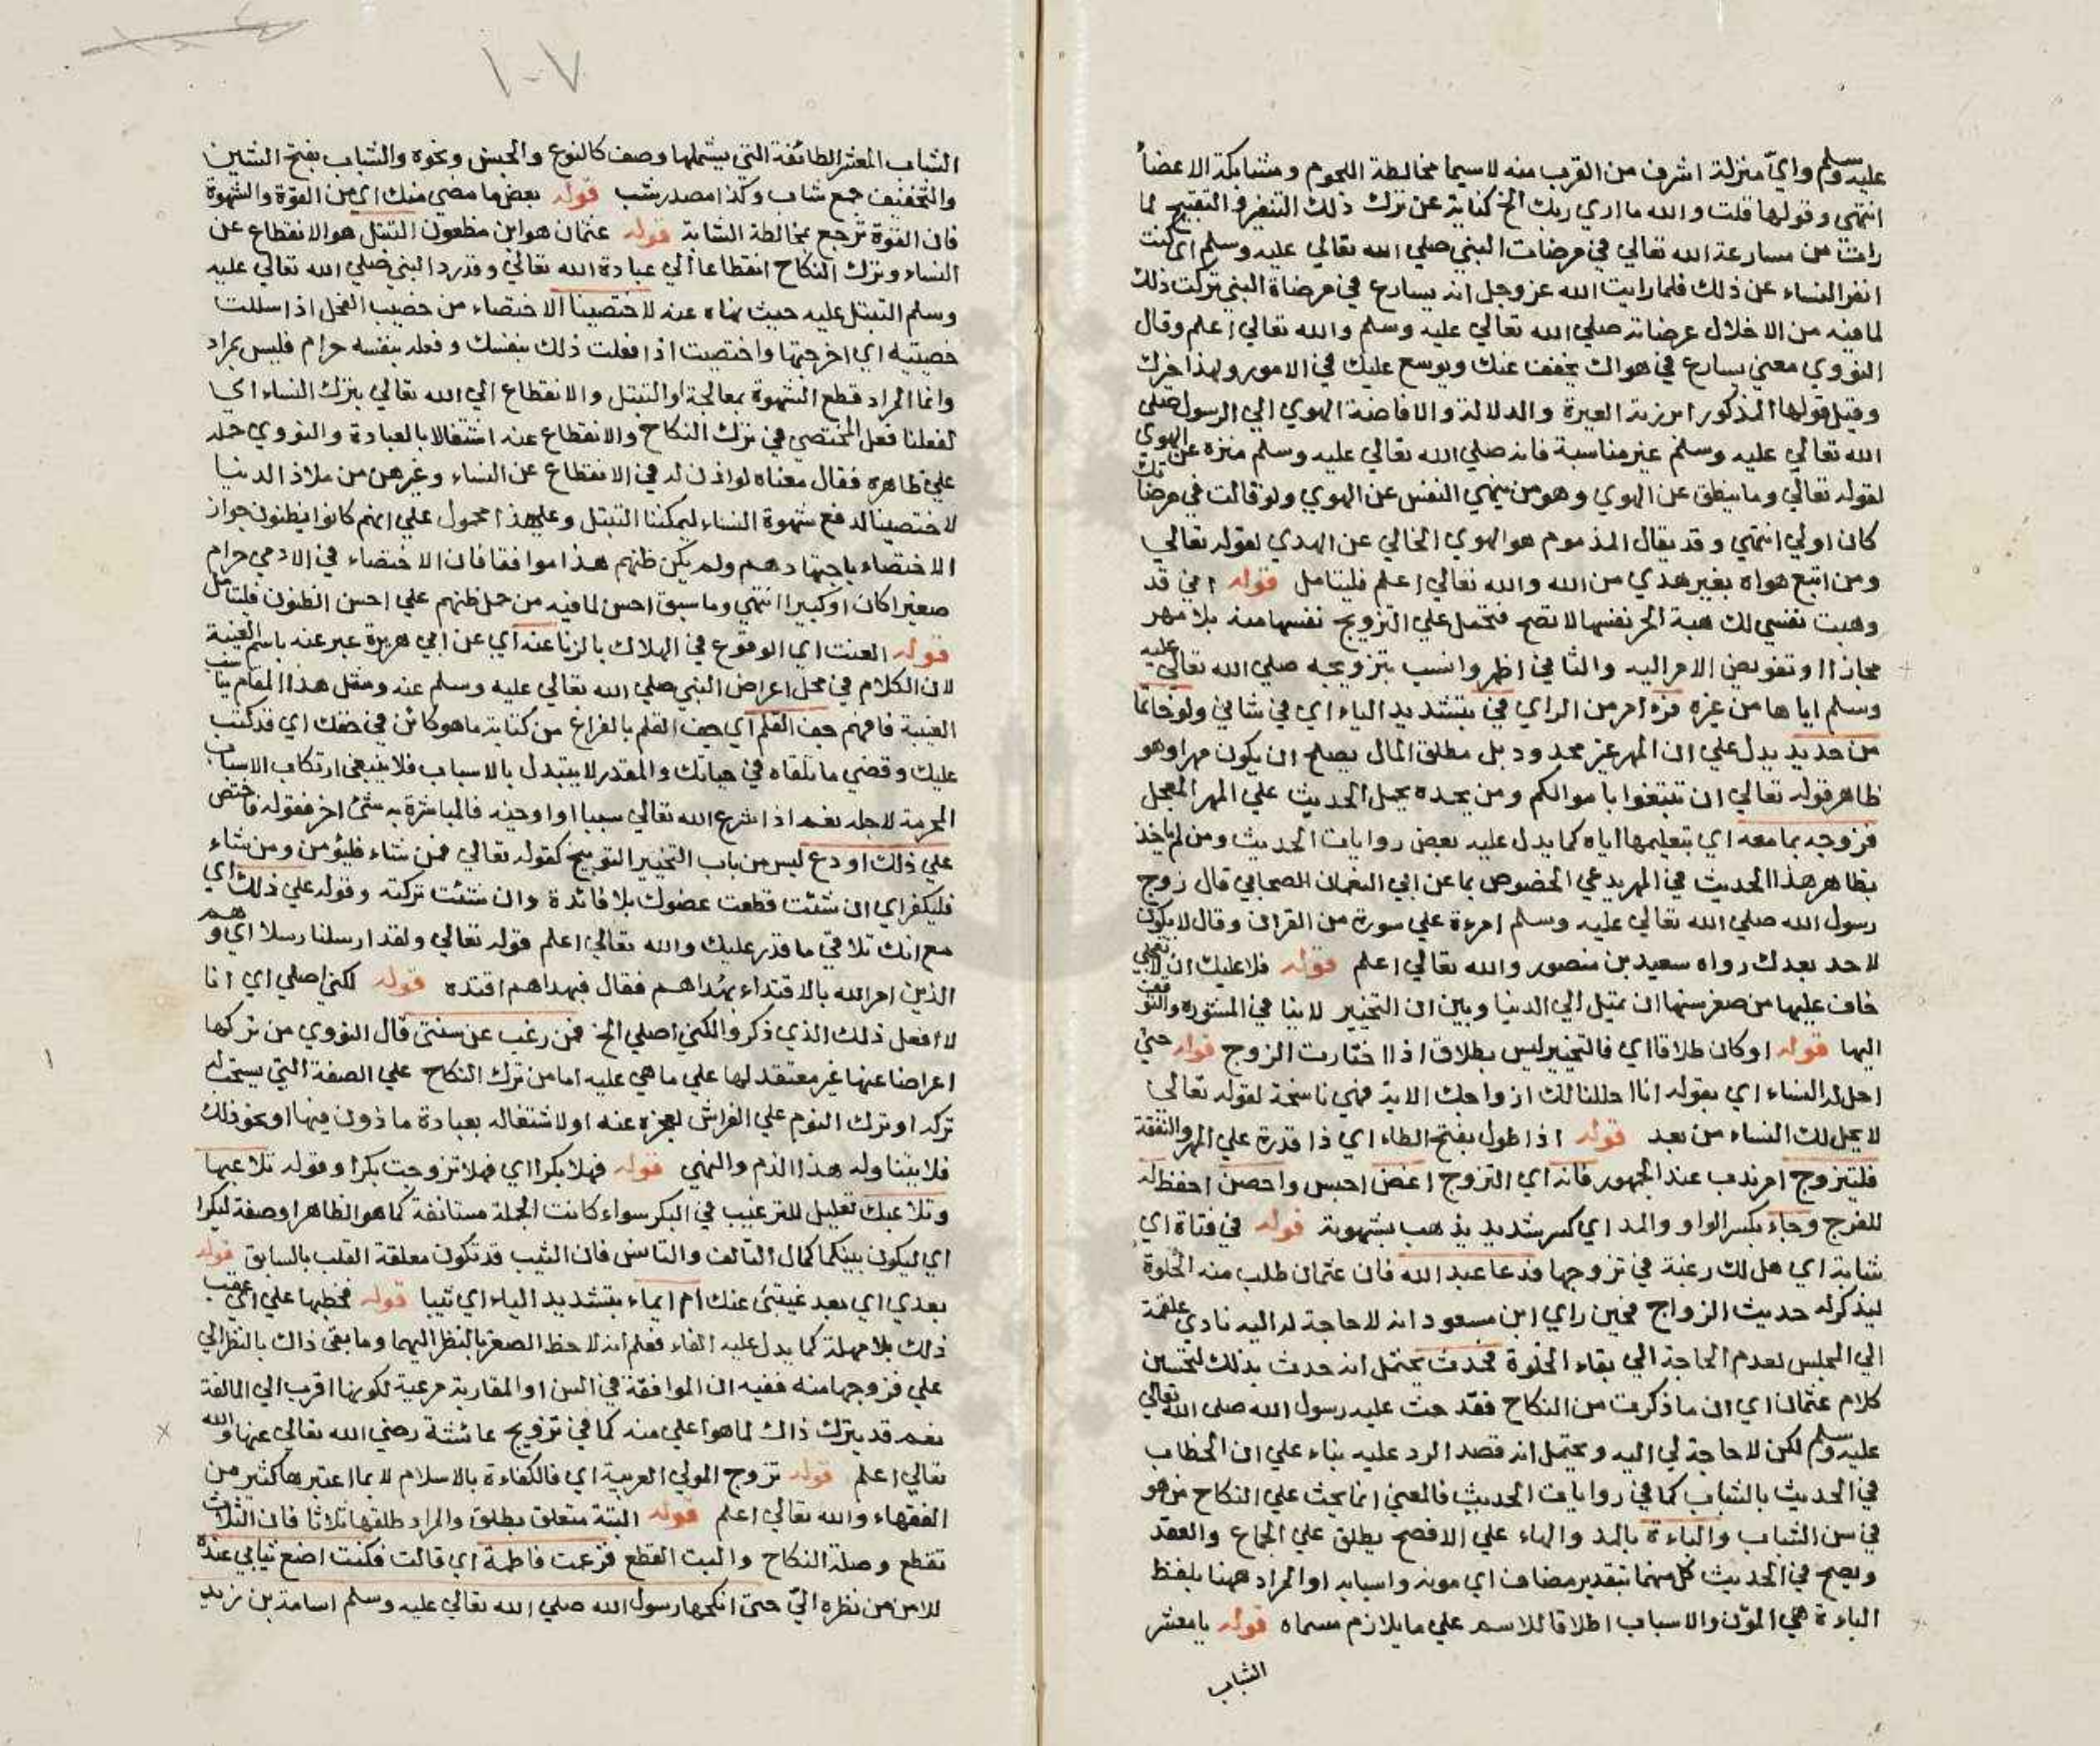 عليه وسلم وايّ منزلة اشرف من القرب منه لا سيما مخالطة اللحوم ومشابكة الاعضاء
انتهى وقولها قلت والله ما اري ربك الخ كناية عن ترك ذلك التنفير والتقبيح لما
رات من مسارعة الله تعالي في مرضات النبي صلي الله تعالي عليه وسلم اي كنت
انفر النساء عن ذلك فلما رايت الله عز وجل انه يسارع في مرضاة النبي تركت ذلك
لما فيه من الاخلال بمرضاته صلي الله تعالي عليه وسلم والله تعالي اعلم وقال
النووي معني يسارع في هواك يخفف عنك ويوسع عليك في الامور ولهذا خيرك
وقيل قولها المذكور ابرزته الغيرة والدلالة والا فاضفة الهوي الي الرسول صلي
الله تعالي عليه وسلم غير مناسبة فانه صلي الله تعالي عليه وسلم منزه عن الهوي
لقوله تعالي وما ينطق عن الهوي وهو من ينهي النفس عن الهوي ولو قالت في مرضاتك
كان اولي انتهي وقد يقال المذموم هو الهوي الخالي عن الهدي لقوله تعالي
ومن اتبع هواه بغير هدي من الله والله تعالي اعلم فليتامل قوله اني قد
وهبت نفسي لك هبة الحر نفسها لا تصح فتحمل علي التزويج نفسها منه بلا مهر
مجازا او تفويض الامر اليه والثاني اظهر وانسب بتزويجه صلي الله تعالي عليه
وسلم اياها من غيره فره امر من الراي فيّ بتشديد الياء اي في شاني ولو خاتما
من حديد يدل علي ان المهر غير محدود بل مطلق المال يصلح ان يكون مهرا وهو
ظاهر قوله تعالي ان تبتغوا باموالكم ومن يحده يحمل الحديث علي المهر المعجل
فزوجه بما معه اي بتعليمها اياه كما يدل عليه بعض روايات الحديث ومن لم ياخذ
بظاهر هذا الحديث في المهر يدعي الخصوص بما عن ابي النعمان الصحابي قال زوج
رسول الله صلي الله تعالي عليه وسلم امرءة علي سورة من القران وقال لا يكون
لاحد بعدك رواه سعيد بن منصور والله تعالي اعلم قوله فلا عليك ان لا تعجلي
خاف عليها من صغر سنها ان تميل الي الدنيا وبين ان التخيير لا ينافي المشورة والتوقف
اليها قوله او كان طلاقا اي فالتخيير ليس بطلاق اذا اختارت الزوج قوله حتي
احل له النساء اي بقوله انا احللنا لك ازواجك الاية فهي ناسخة لقوله تعالي
لا يحل لك النساء من بعد قوله اذا طول بفتح الطاء اي ذا قدرة علي المهر والنفقة
فليتزوج امر ندب عند الجمهور فانه اي التزوج اغض احبس واحصن احفظ له
للفرج وجاء بكسر الواو والمد اي كسر شديد يذهب بشهوته قوله في فتاة اي
شابة اي هل لك رغبة في تزوجها فدعا عبد الله فان عثمان طلب منه الخلوة
ليذكر له حديث الزواج فحين راي ابن مسعود انه لا حاجة له اليه نادي علقمة
الي المجلس لعدم الحاجة الي بقاء الخلوة فحدث يحتمل انه حدث بذلك لتحسين
كلام عثمان اي ان ما ذكرت من النكاح فقد حث عليه رسول الله صلي الله تعالي
عليه وسلم لكن لا حاجة لي اليه ويحتمل انه قصد الرد عليه بناء علي ان الخطاب
في الحديث بالشباب كما في روايات الحديث فالمعني انما يحث علي النكاح من هو
في سن الشباب والباءة بالمد والهاء علي الافصح يطلق علي الجماع والعقد
ويصح في الحديث كل منهما بتقدير مضاف اي مونه واسبابه او المراد ههنا بلفظ
الباءة هي المؤن والاسباب اطلاقا للاسم علي ما يلازم مسماه قوله يا معشر
الشباب
١٠٧
الشباب المعشر الطائفة التي يشملها وصف كالنوع والجنس ونحوه والشباب بفتح الشين
والتخفيف جمع شاب وكذا مصدر شب قوله بعض ما مضي منك اي من القوة والشهوة
فان القوة ترجع بمخالطة الشابة قوله عثمان هو ابن مظعون التبتل هو الانقطاع عن
النساء وترك النكاح انقطاعا الي عبادة الله تعالي وقد رد النبي صلي الله تعالي عليه
وسلم التبتل عليه حيث نهاه عنه لاختصينا الاختصاء من خصيت الفحل اذا سللت
خصيتيه اي اخرجتها واختصيت اذا فعلت ذلك بنفسك وفعله بنفسه حرام فليس بمراد
وانما المراد قطع الشهوة بمعالجة او التبتل والانقطاع الي الله تعالي بترك النساء اي
لفعلنا فعل المختصي في ترك النكاح والانقطاع عنه اشتغالا بالعبادة والنووي حمله
علي ظاهره فقال معناه لو اذن له في الانقطاع عن النساء وغيرهن من ملاذ الدنيا
لاختصينا لدفع شهوة النساء ليمكننا التبتل وعلي هذا محمول علي انهم كانوا يظنون جواز
الاختصاء باجتهادهم ولم يكن ظنهم هذا موافقا فان الاختصاء في الادمي حرام
صغيرا كان او كبيرا انتهي وما سبق احسن لما فيه من حمل ظنهم علي احسن الظنون فليتامل
قوله العنت اي الوقوع في الهلاك بالزنا عنه اي عن ابي هريرة عبر عنه باسم الغيبة
لان الكلام في محل اعراض النبي صلي الله تعالي عليه وسلم عنه ومثل هذا المقام يناسب
الغيبة فافهم جف القلم اي جف القلم بالفراغ من كتابة ما هو كائن في حقك اي قد كتب
عليك وقضي ما تلقاه في حياتك والمقدر لا يتبدل بالاسباب فلا ينبغي ارتكاب الاسباب
المحرمة لاجله نعم اذا شرع الله تعالي سببا او اوجبه فالمباشرة به شئ اخر فقوله فاختص
علي ذلك او دع ليس من باب التخيير التوبيخ كقوله تعالي فمن شاء فليؤمن ومن شاء
فليكفر اي ان شئت قطعت عضوك بلا فائدة وان شئت تركته وقوله علي ذلك اي
مع انك تلاقي ما قدر عليك والله تعالي اعلم قوله تعالي ولقد ارسلنا رسلا اي وهم
الذين امر الله بالاقتداء بهداهم فقال فبهداهم اقتده قوله لكني اصلي اي انا
لا افعل ذلك الذي ذكروا لكني اصلي الخ فمن رغب عن سنتي قال النووي من تركها
اعراضا عنها غير معتقد لها علي ما هي عليه اما من ترك النكاح علي الصفة التي يستحب له
تركه او ترك النوم علي الفراش لعجزه عنه او لاشتغاله بعبادة ماذون فيها او نحو ذلك
فلا يتناوله هذا الذم والنهي قوله فهلا بكرا اي فهلا تزوجت بكرا وقوله تلاعبها
وتلاعبك تعليل للترغيب في البكر سواء كانت الجملة مستانفة كما هو الظاهر او صفة لبكرا
اي ليكون بينكما كمال التالف والتانس فان الثيب قد تكون معلقة القلب بالسابق قوله
بعدي اي بعد غيبتي عنك ام ايماء بتشديد الياء اي ثيبا قوله فخطبها علي اي عقب
ذلك بلا مهلة كما يدل عليه الفاء فعلم انه لاحظ الصغر بالنظر اليهما وما بقي ذاك بالنظر الي
علي فزوجها منه ففيه ان الموافقة في السن او المقاربة مرعية لكونها اقرب الي المالفة
نعم قد يترك ذاك لما هو اعلي منه كما في تزويج عائشة رضي الله تعالي عنها والله
تعالي اعلم قوله تزوج المولي العربية اي فالكفاءة بالاسلام لا بما اعتبرها كثير من
الفقهاء والله تعالي اعلم قوله البتة متعلق بطلق والمراد طلقها ثلاثا فان الثلاث
تقطع وصلة النكاح والبت القطع فزعمت فاطمة اي قالت فكنت اضع ثيابي عنده
للامن من نظره اليّ حتى انكحها رسول الله صلي الله تعالي عليه وسلم اسامة بن زيد